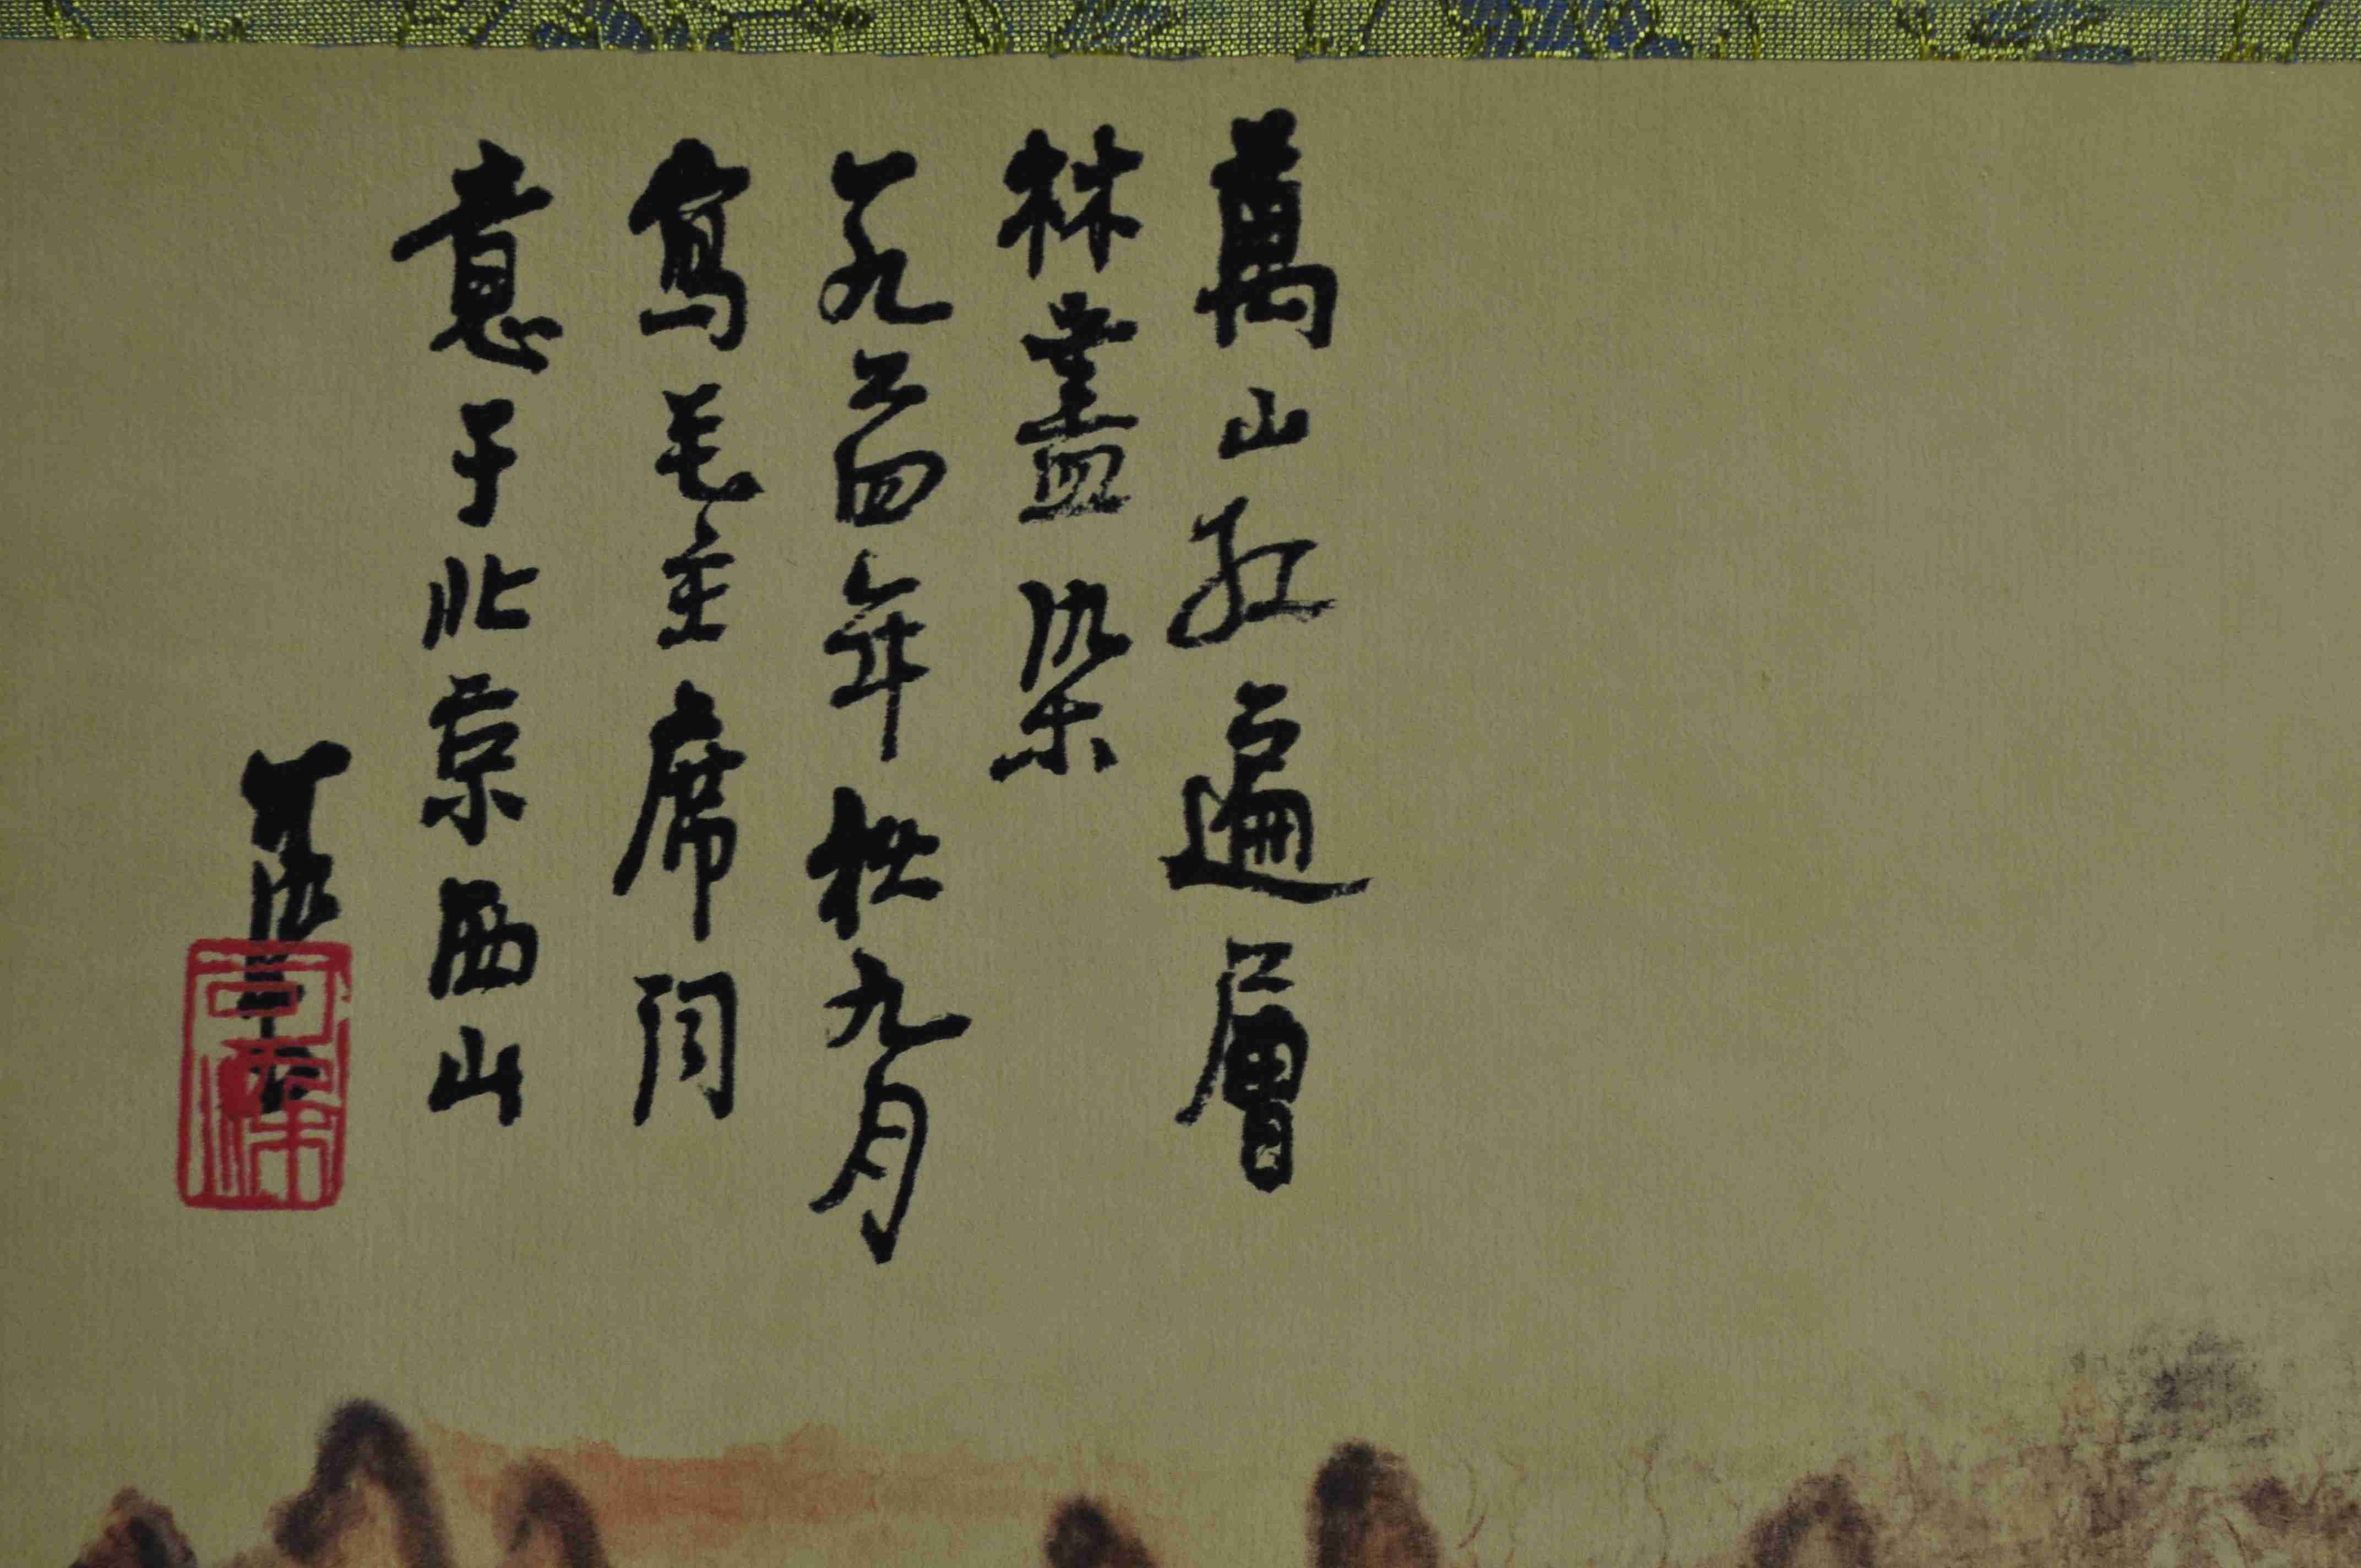 萬山红遍層
林盡染
一九六四年秋九月
寫毛主席词
意于北京西山
可染